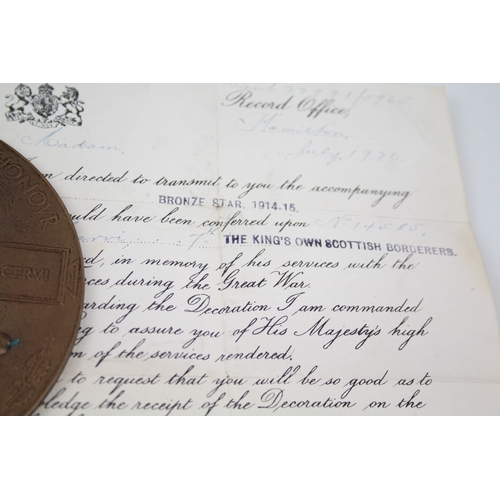 Record Office,
Hamilton
July, 1920.
Madam,
directed to transmit to you the accompanying
BRONZE STAR, 1914-15.
have been conferred upon No 14585.
THE KING'S OWN SCOTTISH BORDERERS.
in memory of his services with the
during the Great War.
the Decoration I am commanded
to assure you of His Majesty's high
of the services rendered.
to request that you will be so good as to
the receipt of the Decoration on the
HONOUR